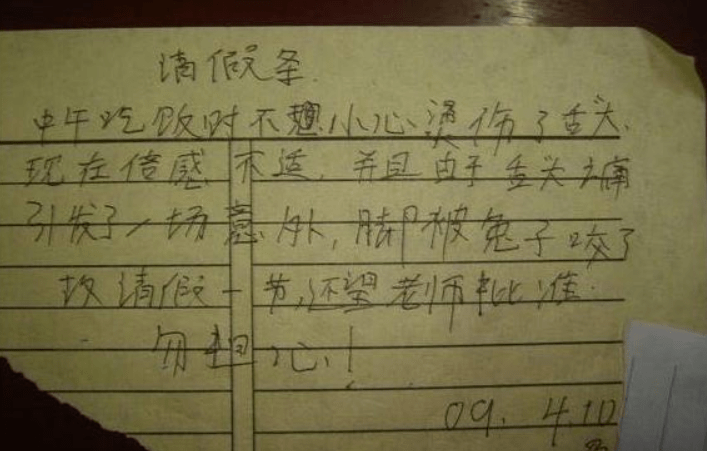 请假条
中午吃饭时不想小心烫伤了舌头.
现在倍感不适,并且由于舌头之痛
引发了一场意外,脚被兔子咬了
故请假一节,还望老师批准.
勿担心!
09. 4.10